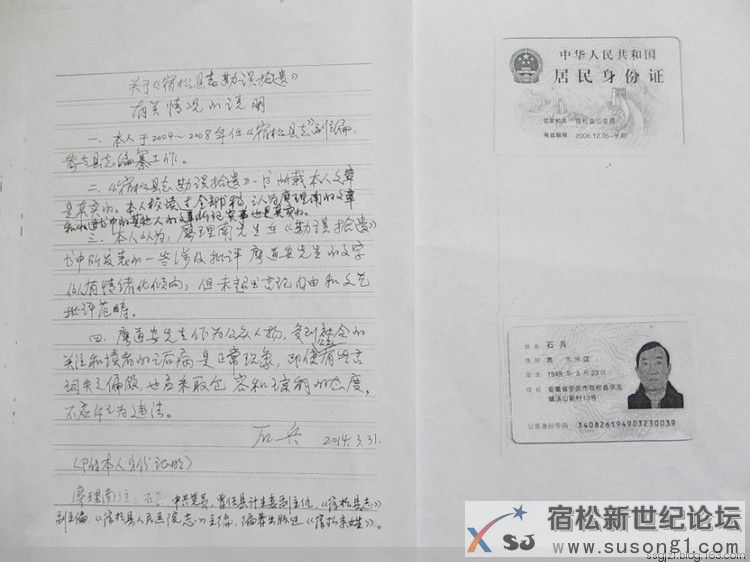 关于《宿松县志勘误拾遗》
有关情况的说明
一、本人于2004~2008年任《宿松县志》副主编,
县志编纂工作。
二、《宿松县志勘误拾遗》一书所载本人文章
是真实的。本人校读过全部书稿,认为廖理南的文章
和书中的其他人的文章所记实事也是真实的。
三、本人认为,廖理南先生在《勘误拾遗》
书中所发表的一些涉及批评廖道安先生的文字
似有情绪化倾向,但未超出言论自由和文艺
批评范畴。
四、廖道安先生作为公众人物,受到社会的
关注和读者的诟病是正常现象,即使有些言
词失之偏颇,也应采取包容和谅解的态度,
不应斥之为违法。
石兵 2014.3.31.
(附本人身份证明)
廖理南注:石兵,中共党员,曾任县计生委副主任,《宿松县志》
副主编,《宿松县人民医院志》主编,编著出版过《宿松百姓》。
中华人民共和国
居民身份证
签发机关 宿松县公安局
有效期限 2006.12.05-长期
姓名 石兵
性别 男 民族 汉
出生 1949年3月23日
住址 安徽省安庆市宿松县孚玉
镇汤山新村13号
公民身份号码 340826194903230039
XSJ 宿松新世纪论坛
www.susong1.com
ssgjzl.blog.163.com